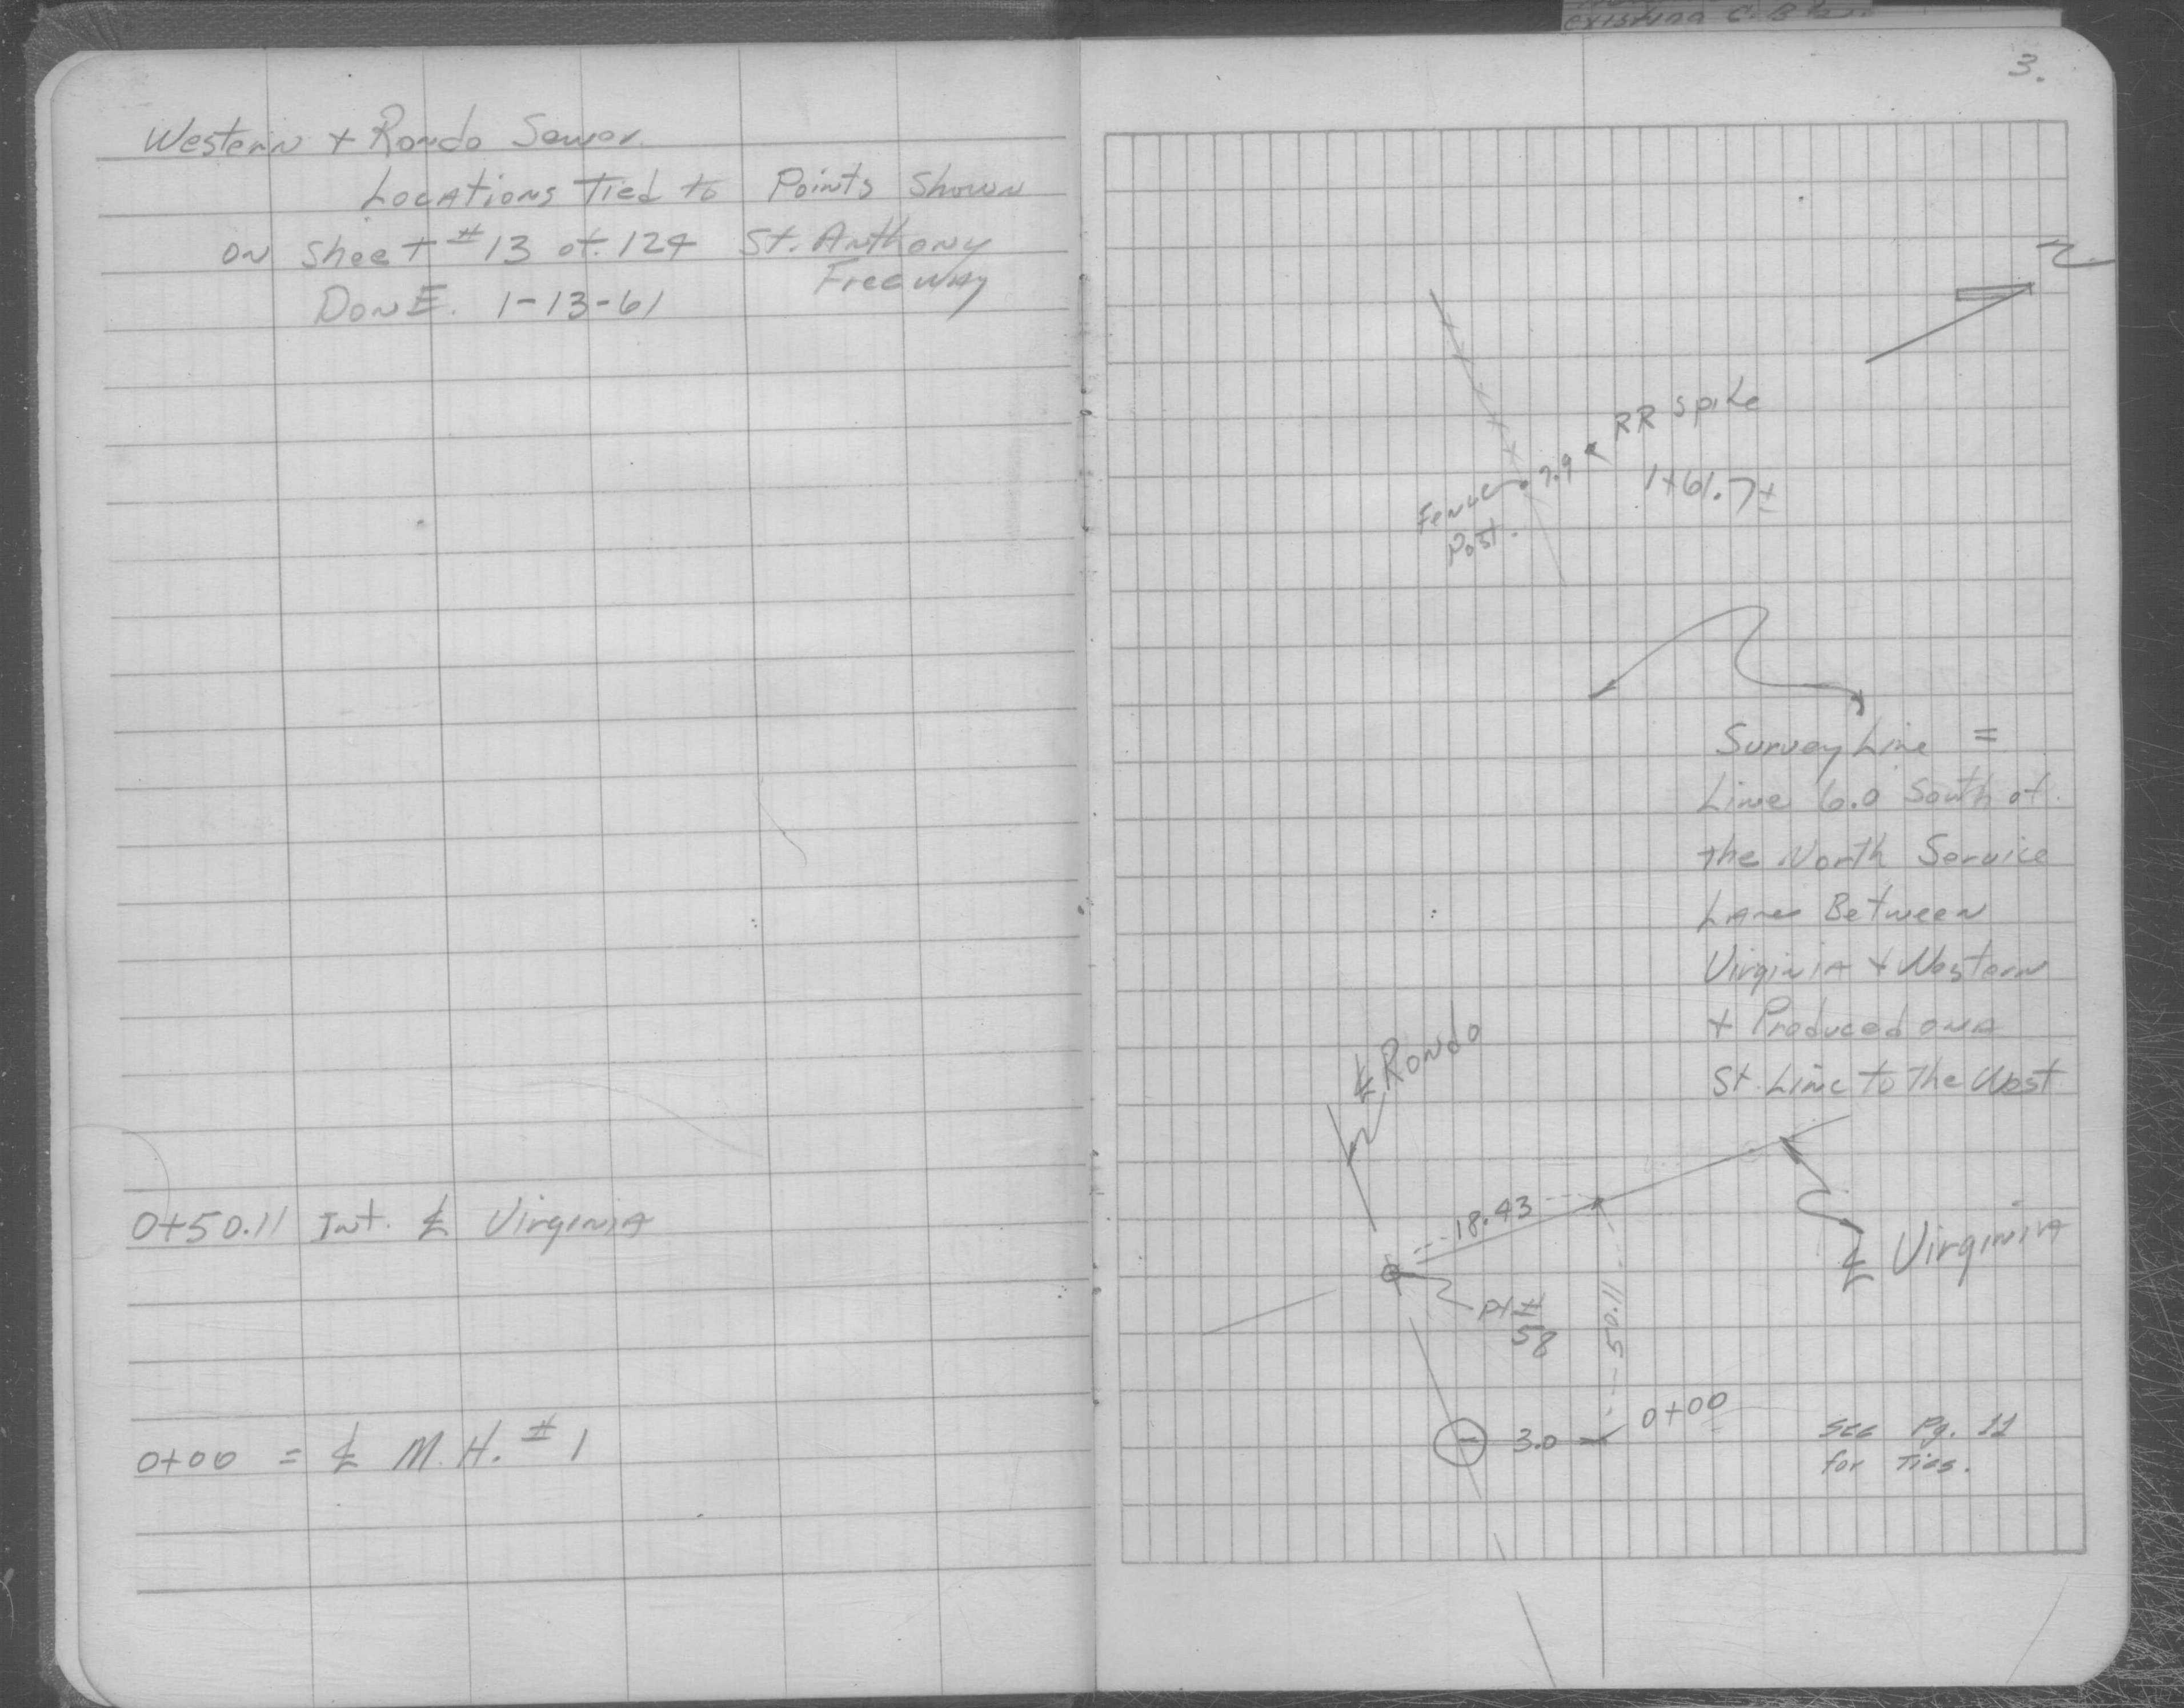 existing C.B.'s.
Western + Rondo Sewer.
Locations Tied to Points Shown
on Sheet #13 of 124 St. Anthony
Freeway
Done. 1-13-61
0+50.11 Int. ℄ Virginia
0+00 = ℄ M.H. #1
3.
N
RR Spike
7.9
1+61.7±
Fence
Post.
Survey Line =
Line 6.0 South of
the North Service
Lane Between
Virginia + Western
+ Produced on a
St. Line to The West
℄ Rondo
18.43
℄ Virginia
Pt #
58
50.11
0+00
3.0
See Pg. 11
for Ties.